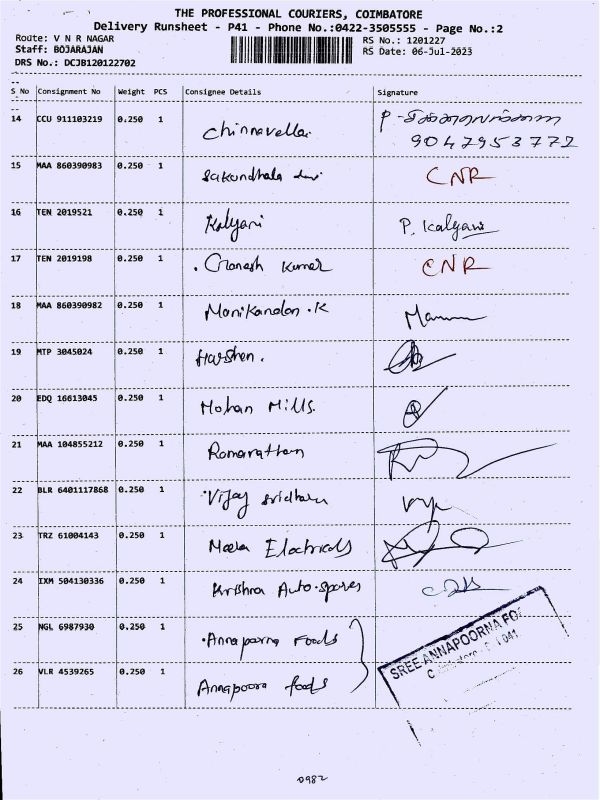 THE PROFESSIONAL COURIERS, COIMBATORE
Delivery Runsheet - P41 - Phone No.:0422-3505555 - Page No.:2
Route: V N R NAGAR
RS No.: 1201227
Staff: BOJARAJAN
RS Date: 06-Jul-2023
DRS No.: DCJB120122702
S No Consignment No Weight PCS Consignee Details Signature
14 CCU 911103219 0.250 1 Chinnavellai P -
9047953772
15 MAA 860390983 0.250 1 Sakundhala devi CNR
16 TEN 2019521 0.250 1 Kalyani P. Kalyani
17 TEN 2019198 0.250 1 Ganesh Kumar CNR
18 MAA 860390982 0.250 1 Manikandan .K
19 MTP 3045024 0.250 1 Harshan.
20 EDQ 16613045 0.250 1 Mohan Mills.
21 MAA 104855212 0.250 1 Ramarathan
22 BLR 6401117868 0.250 1 Vijay Sridharan
23 TRZ 61004143 0.250 1 Meera Electricals
24 IXM 504130336 0.250 1 Krishna Auto-spares
25 NGL 6987930 0.250 1 Annapoorna Foods
26 VLR 4539265 0.250 1 Annapoorna foods
SREE ANNAPOORNA
041
0982